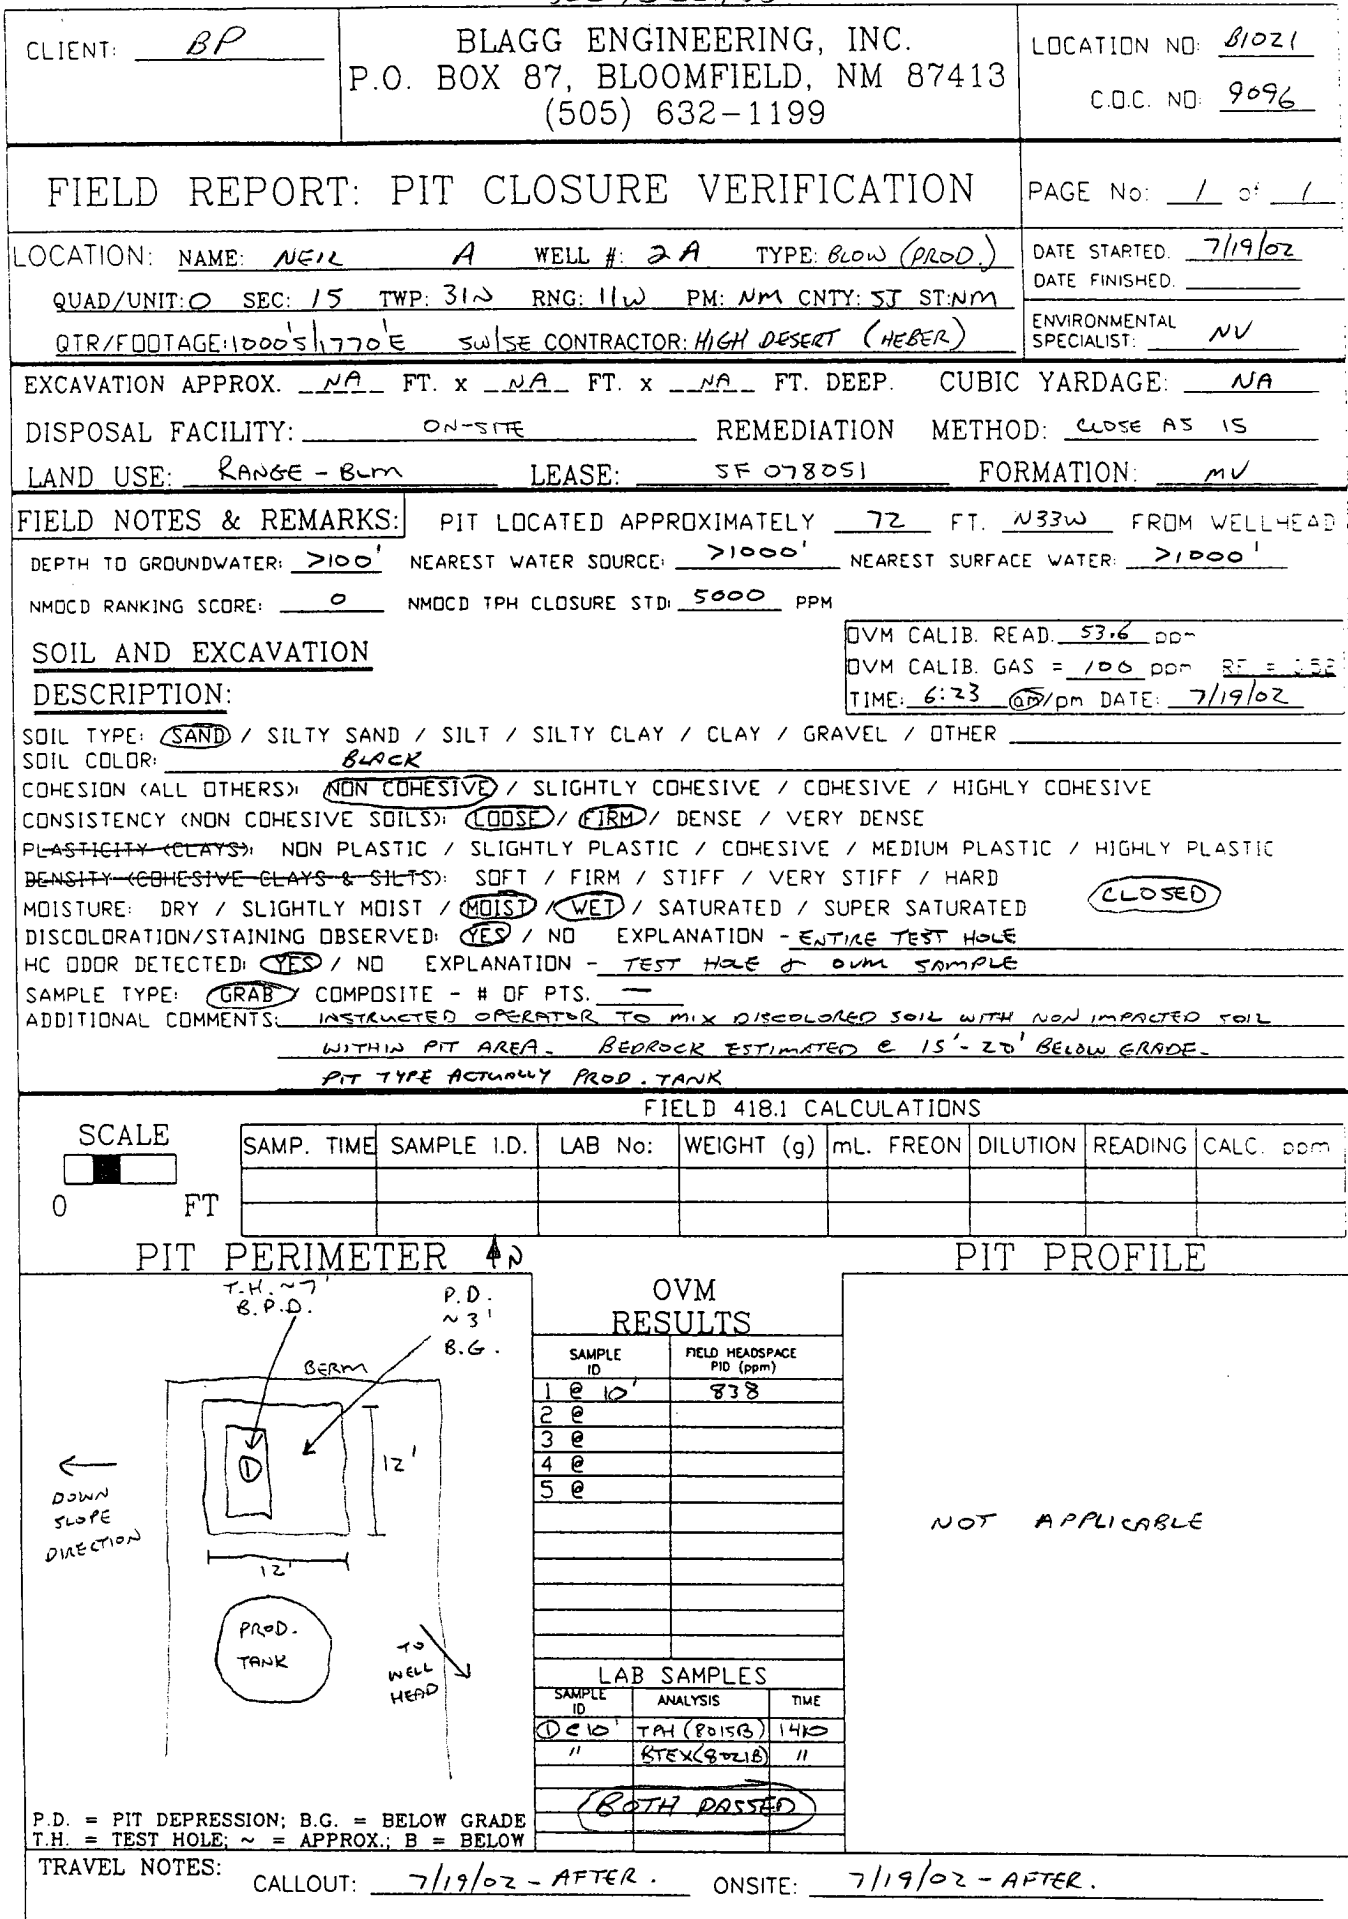 CLIENT: BP
BLAGG ENGINEERING, INC.
P.O. BOX 87, BLOOMFIELD, NM 87413
(505) 632-1199
LOCATION NO: B1021
C.O.C. NO: 9096
FIELD REPORT: PIT CLOSURE VERIFICATION
PAGE No: 1 of 1
LOCATION: NAME: NEIL A WELL #: 2A TYPE: BLOW (PROD.)
QUAD/UNIT: O SEC: 15 TWP: 31N RNG: 11W PM: NM CNTY: SJ ST: NM
QTR/FOOTAGE: 1000'S/1770'E SW/SE CONTRACTOR: HIGH DESERT (HEBER)
DATE STARTED. 7/19/02
DATE FINISHED.
ENVIRONMENTAL
SPECIALIST: NV
EXCAVATION APPROX. NA FT. x NA FT. x NA FT. DEEP. CUBIC YARDAGE: NA
DISPOSAL FACILITY: ON-SITE REMEDIATION METHOD: CLOSE AS IS
LAND USE: RANGE - BLM LEASE: SF 078051 FORMATION: MV
FIELD NOTES & REMARKS: PIT LOCATED APPROXIMATELY 72 FT. N33W FROM WELLHEAD
DEPTH TO GROUNDWATER: >100' NEAREST WATER SOURCE: >1000' NEAREST SURFACE WATER: >1000'
NMOCD RANKING SCORE: 0 NMOCD TPH CLOSURE STD: 5000 PPM
SOIL AND EXCAVATION
DESCRIPTION:
OVM CALIB. READ. 53.6 ppm
OVM CALIB. GAS = 100 ppm RF =
TIME: 6:23 am/pm DATE: 7/19/02
SOIL TYPE: SAND / SILTY SAND / SILT / SILTY CLAY / CLAY / GRAVEL / OTHER
SOIL COLOR: BLACK
COHESION (ALL OTHERS): NON COHESIVE / SLIGHTLY COHESIVE / COHESIVE / HIGHLY COHESIVE
CONSISTENCY (NON COHESIVE SOILS): LOOSE / FIRM / DENSE / VERY DENSE
PLASTICITY (CLAYS): NON PLASTIC / SLIGHTLY PLASTIC / COHESIVE / MEDIUM PLASTIC / HIGHLY PLASTIC
DENSITY (COHESIVE CLAYS & SILTS): SOFT / FIRM / STIFF / VERY STIFF / HARD
MOISTURE: DRY / SLIGHTLY MOIST / MOIST / WET / SATURATED / SUPER SATURATED CLOSED
DISCOLORATION/STAINING OBSERVED: YES / NO EXPLANATION - ENTIRE TEST HOLE
HC ODOR DETECTED: YES / NO EXPLANATION - TEST HOLE & OVM SAMPLE
SAMPLE TYPE: GRAB / COMPOSITE - # OF PTS. —
ADDITIONAL COMMENTS: INSTRUCTED OPERATOR TO MIX DISCOLORED SOIL WITH NON IMPACTED SOIL
WITHIN PIT AREA. BEDROCK ESTIMATED @ 15'-20' BELOW GRADE.
PIT TYPE ACTUALLY PROD. TANK
FIELD 418.1 CALCULATIONS
SCALE
0 FT
SAMP. TIME SAMPLE I.D. LAB No: WEIGHT (g) mL. FREON DILUTION READING CALC. ppm
PIT PERIMETER N
PIT PROFILE
T.H. ~7'
B.P.D.
P.D.
~3'
B.G.
BERM
1
12'
12'
DOWN
SLOPE
DIRECTION
PROD.
TANK
TO
WELL
HEAD
P.D. = PIT DEPRESSION; B.G. = BELOW GRADE
T.H. = TEST HOLE; ~ = APPROX.; B = BELOW
OVM
RESULTS
SAMPLE ID FIELD HEADSPACE PID (ppm)
1 @ 10' 838
2 @
3 @
4 @
5 @
LAB SAMPLES
SAMPLE ID ANALYSIS TIME
① @ 10' TPH (8015B) 1410
" BTEX (8021B) "
BOTH PASSED
NOT APPLICABLE
TRAVEL NOTES: CALLOUT: 7/19/02 - AFTER. ONSITE: 7/19/02 - AFTER.